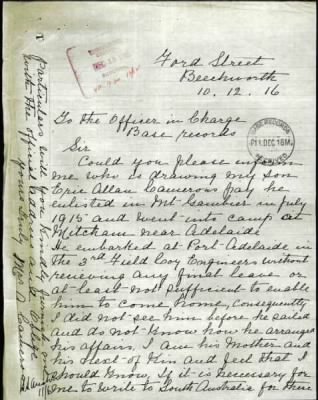 Ford Street
Beechworth
10. 12. 16
To the Officer in Charge
Base records
Sir
Could you please inform
me who is drawing my son
Eric Allan Camerons pay he
enlisted in Mt Gambier in july
1915 and went into camp at
Mitcham near Adelaide
he embarked at Port Adelaide in
the 3rd Field Coy Engineers without
receiving any final leave or
at least not sufficient to enable
him to come home, consequently
I did not see him before he sailed
and do not know how he arranged
his affairs, I am his Mother and
his next of Kin and feel that I
should know, If it is necessary for
me to write to South Australia for these
particulars will you kindly furnish me
with the official address and oblige
yours truly Mrs A Cameron
BASE RECORDS
11 DEC 16